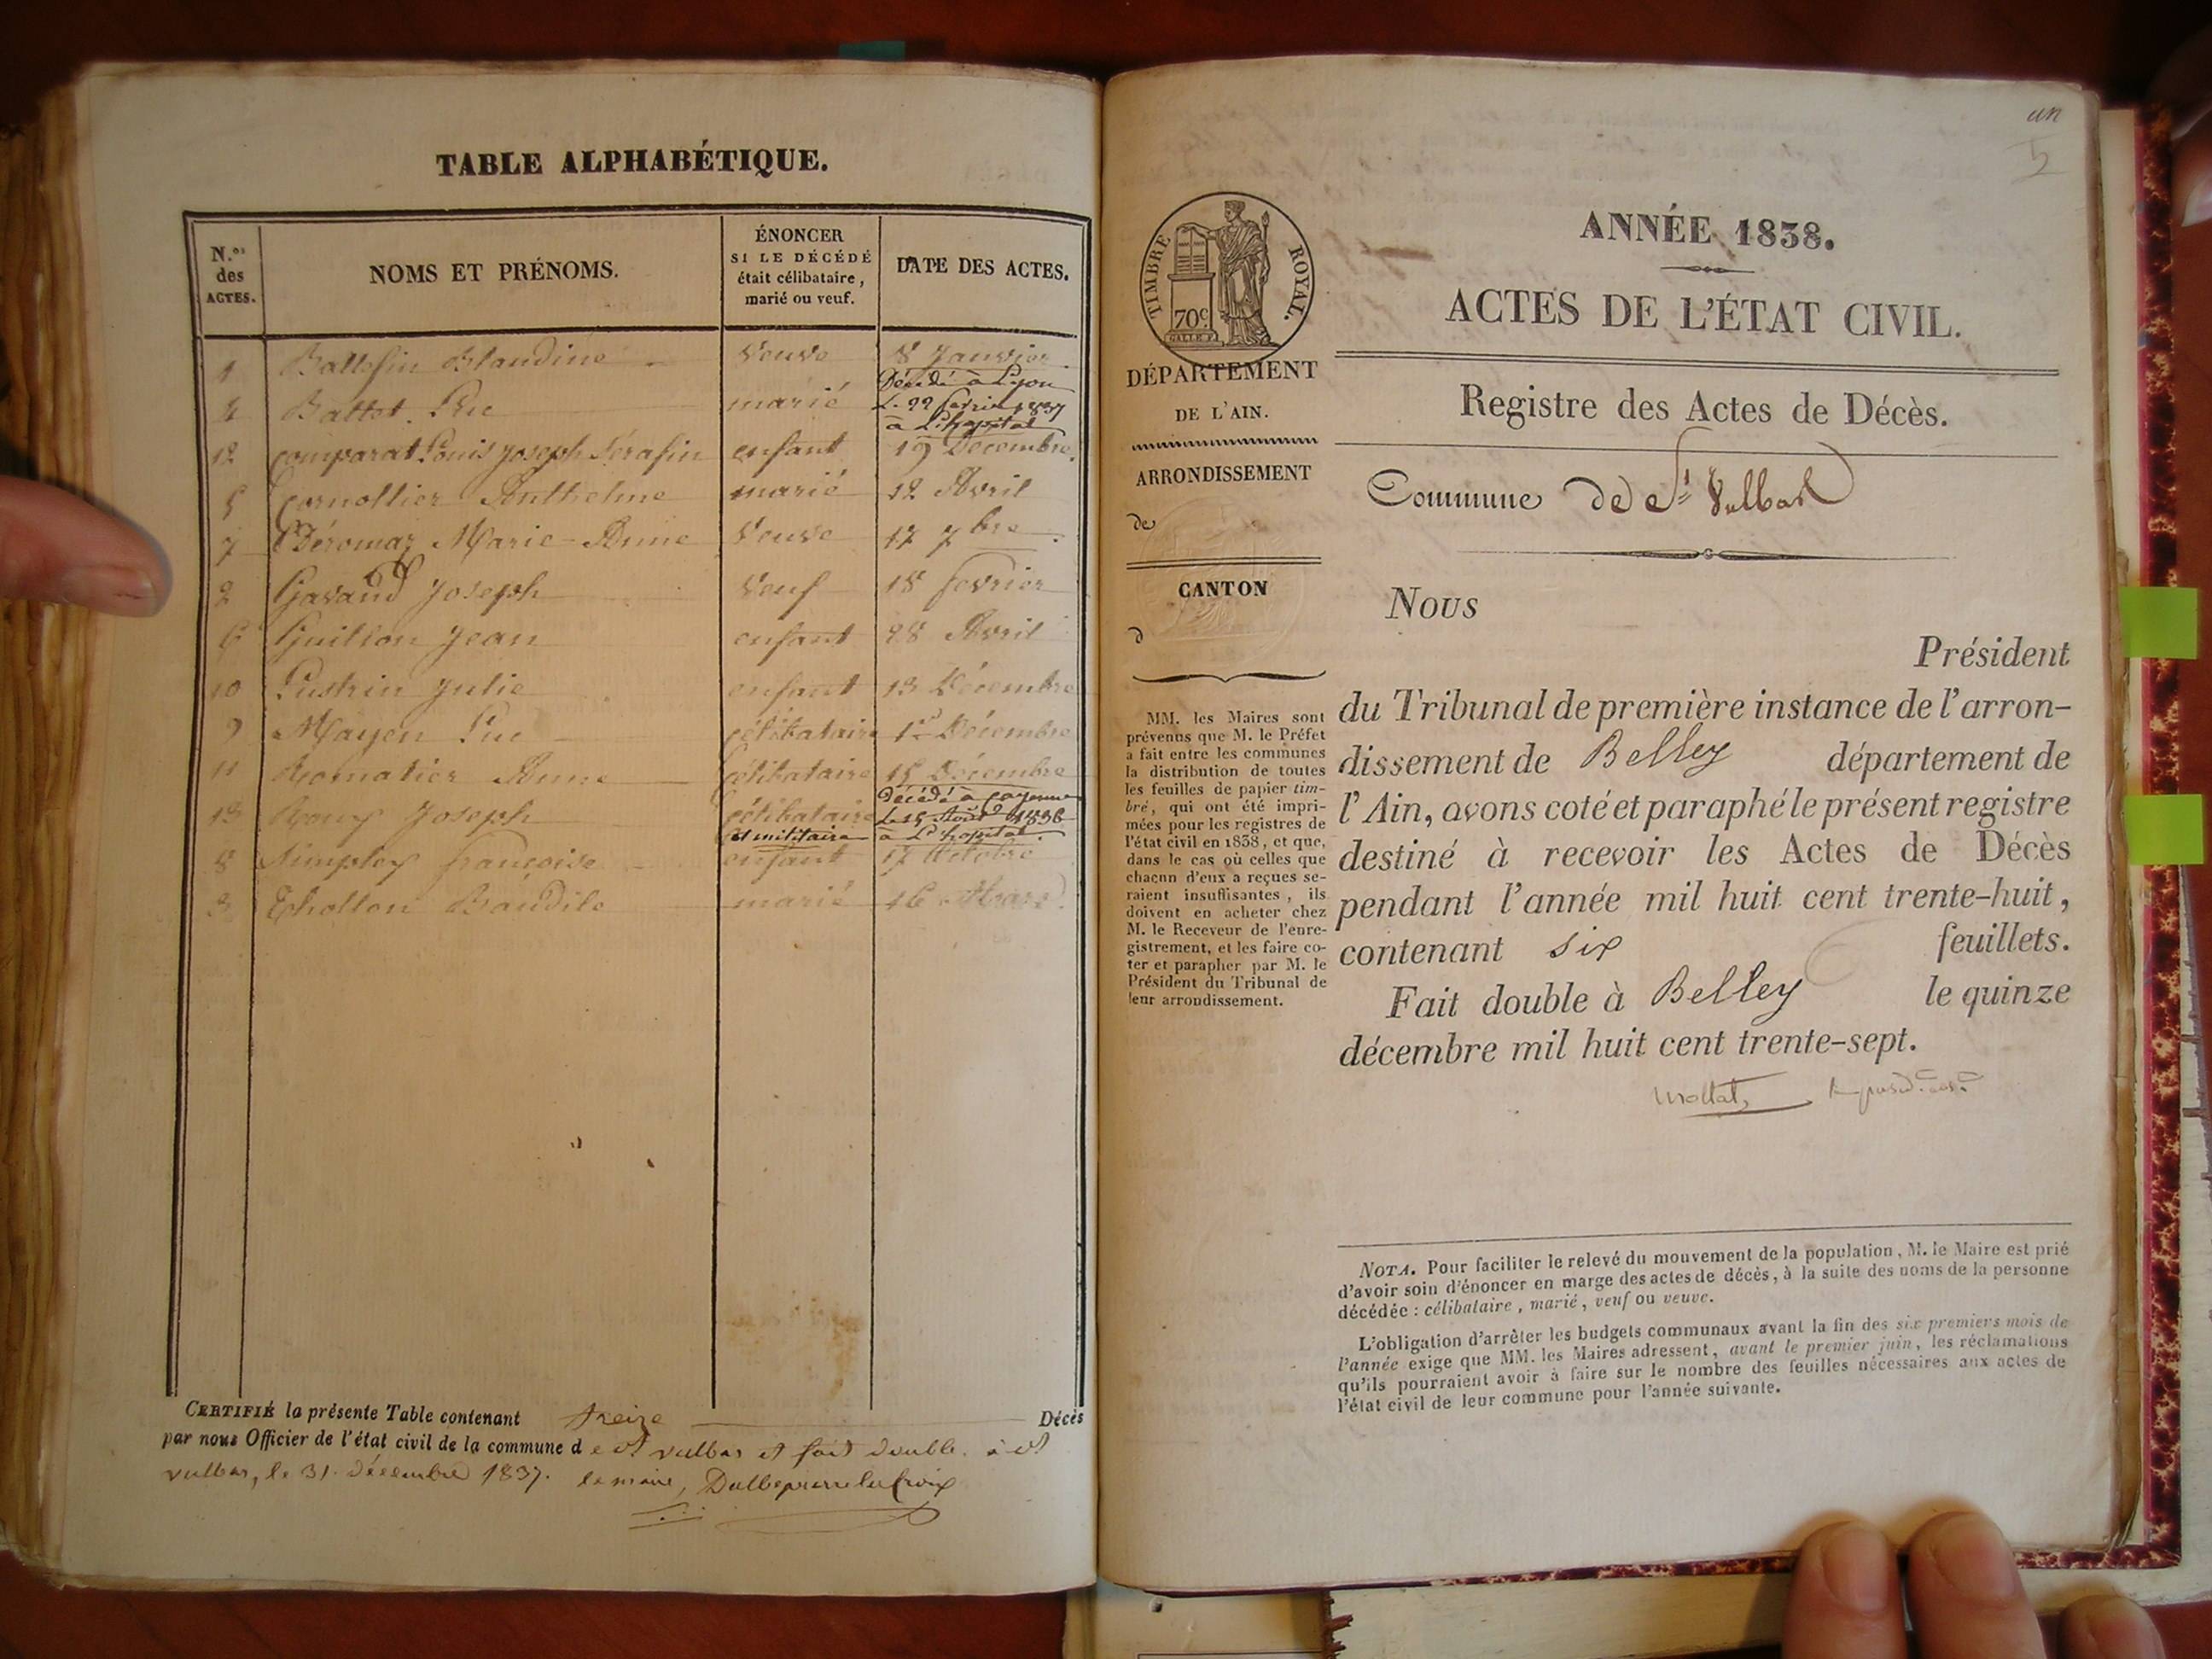 TABLE ALPHABÉTIQUE.
N.os des ACTES.
NOMS ET PRÉNOMS.
ÉNONCER
SI LE DÉCÉDÉ
était célibataire,
marié ou veuf.
DATE DES ACTES.
1 Ballefin Blandine veuve 8 Janvier
4 Battet Luc marié Décédé à Lyon
L. 22 fevrier 1837
à L'hopital
12 comparat Louis Joseph Sérafin enfant 19 Decembre.
5 Cornollier Anthelme marié 12 Avril
7 Béromaz Marie-Anne veuve 17 7bre
2 Gavand Joseph veuf 18 fevrier
6 Guillon Jean enfant 28 Avril
10 Lustrin Julie enfant 13 Décembre
9 Mayen Luc célibataire 1er Décembre
11 Romatier Anne célibataire 15 Décembre
13 Roux Joseph célibataire Décédé à
et militaire Le 15 Août 1836
à L'hopital.
8 Simplex françoise enfant 17 Octobre
3 Thollon Baudile marié 16 Mars
CERTIFIÉ la présente Table contenant treize Décès
par nous Officier de l'état civil de la commune d e St vulbas et fait double à St
vulbas, le 31 Décembre 1837. le maire,
un
TIMBRE ROYAL.
70c
DÉPARTEMENT
DE L'AIN.
ARRONDISSEMENT
de
CANTON
d
MM. les Maires sont
prévenus que M. le Préfet
a fait entre les communes
la distribution de toutes
les feuilles de papier tim-
bré, qui ont été impri-
mées pour les registres de
l'état civil en 1838, et que,
dans le cas où celles que
chacun d'eux a reçues se-
raient insuffisantes, ils
doivent en acheter chez
M. le Receveur de l'enre-
gistrement, et les faire co-
ter et parapher par M. le
Président du Tribunal de
leur arrondissement.
ANNÉE 1838.
ACTES DE L'ÉTAT CIVIL.
Registre des Actes de Décès.
Commune de St Vulbas
Nous
Président
du Tribunal de première instance de l'arron-
dissement de Belley département de
l'Ain, avons coté et paraphé le présent registre
destiné à recevoir les Actes de Décès
pendant l'année mil huit cent trente-huit,
contenant six feuillets.
Fait double à Belley le quinze
décembre mil huit cent trente-sept.
NOTA. Pour faciliter le relevé du mouvement de la population, M. le Maire est prié
d'avoir soin d'énoncer en marge des actes de décès, à la suite des noms de la personne
décédée : célibataire, marié, veuf ou veuve.
L'obligation d'arrêter les budgets communaux avant la fin des six premiers mois de
l'année exige que MM. les Maires adressent, avant le premier juin, les réclamations
qu'ils pourraient avoir à faire sur le nombre des feuilles nécessaires aux actes de
l'état civil de leur commune pour l'année suivante.